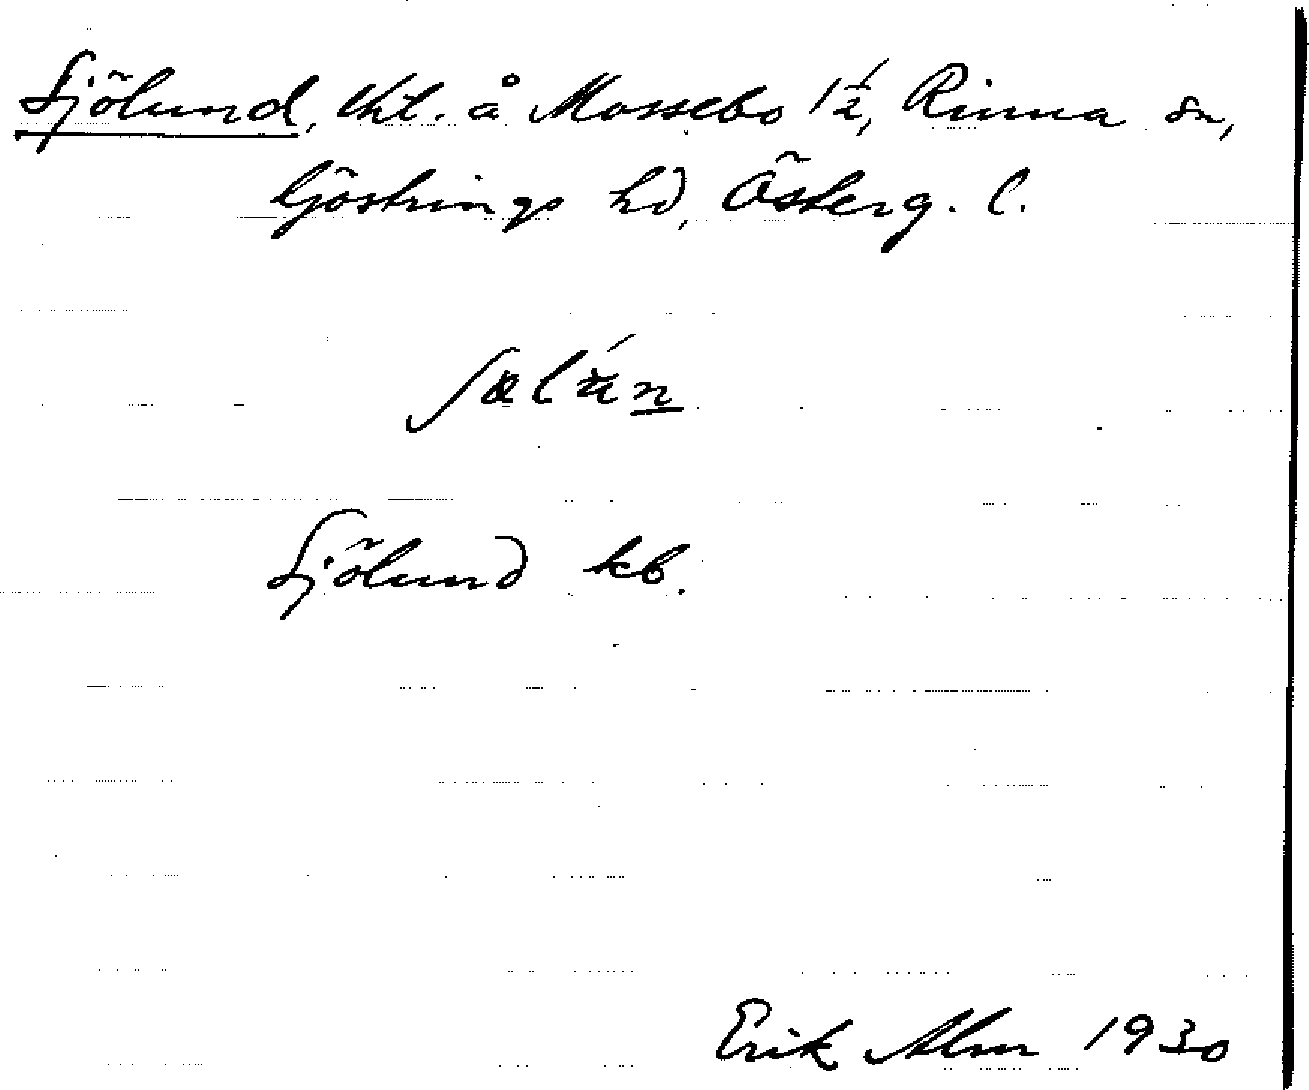 Sjölund, lht. å Mossebo 1½, Rinna sn,
Göstrings hd, Österg. l.
Sjölund kb.
Erik Alm 1930